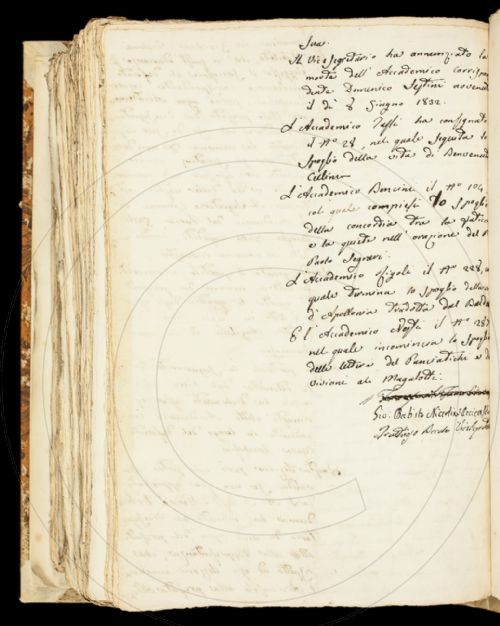 sua.
Il ViceSegretario ha annunziato la
morte dell' Accademico corrispon
dente Domenico Sestini avvenuta
il dì 8 Giugno 1832.
L'Accademico ha consegnato
il N.º 28, nel quale seguita lo
Spoglio della vita di Benvenuto
Cellini
L'Accademico Bencini il N.º 104,
col quale compiesi lo Spoglio
della concordia tra la fatica
e la quiete nell' orazione del P.
Paolo Segneri.
L'Accademico il N.º 228,
quale termina lo Spoglio della
d'Apollonio tradotta dal Baldelli
E l'Accademico il N.º
nel quale incomincia lo Spoglio
delle lettere del Panciatichi e d
visioni al Magalotti.
Gio. Batista Niccolini
ViceSegretario